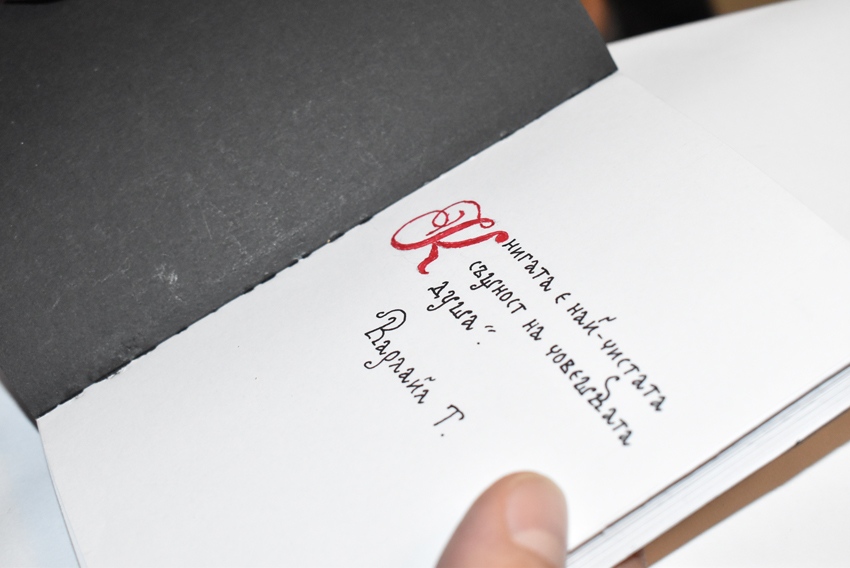 Книгата е най-чистата
същност на човешката
душа."
Карлайл Т.